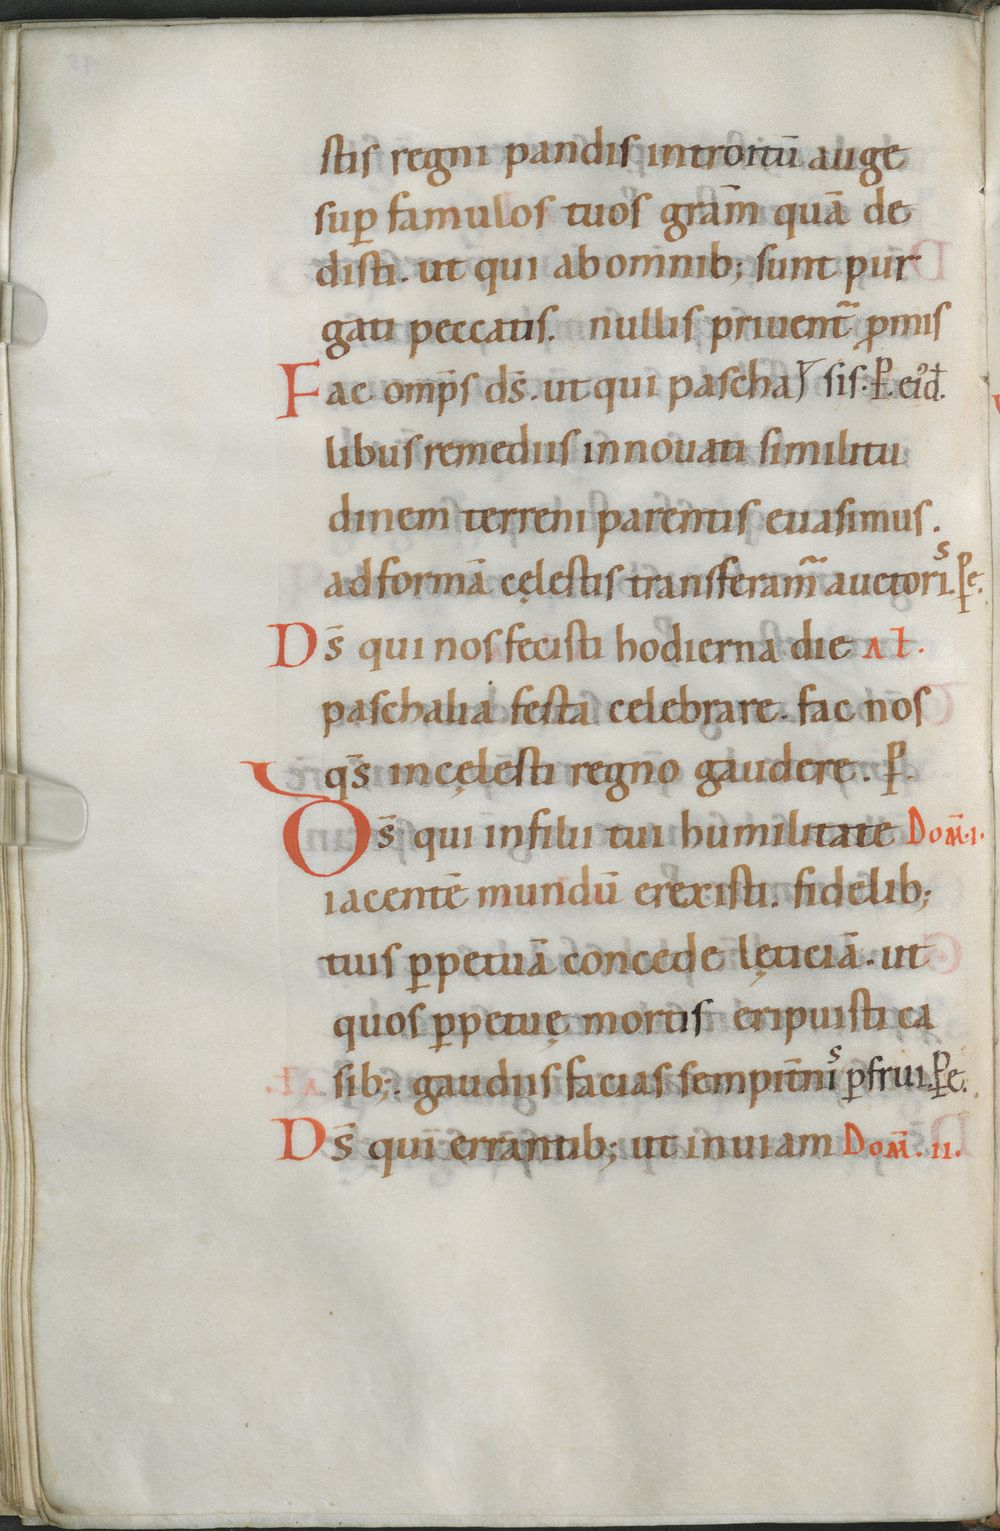 stis regni pandis introitū auge
sup̱ famulos tuos grām̄ quā de
disti. ut qui ab omnib; sunt pur
gati peccatis. nullis priuent̄ p̱missis. P̱. eīd.
Fac omp̄s ds̄. ut qui pascha
libus remediis innouati similitu
dinem terreni parentis euasimus.
ad formā cęlestis transferam̄ auctoris. P̱e.
Ds̄ qui nos fecisti hodierna die Ał.
paschalia festa celebrare. fac nos
qs̄ in cęlesti regno gaudere. P̱.
Ds̄ qui in filii tui humilitate Dom̄. I.
iacentē mundū erexisti. fidelib;
tuis p̱petuā concede lęticiā. ut
quos p̱petuę mortis eripuisti ca
sib;. gaudiis facias sempit̄nis p̱frui. P̱e.
Ds̄ qui errantib; ut in uiam Dom̄. II.